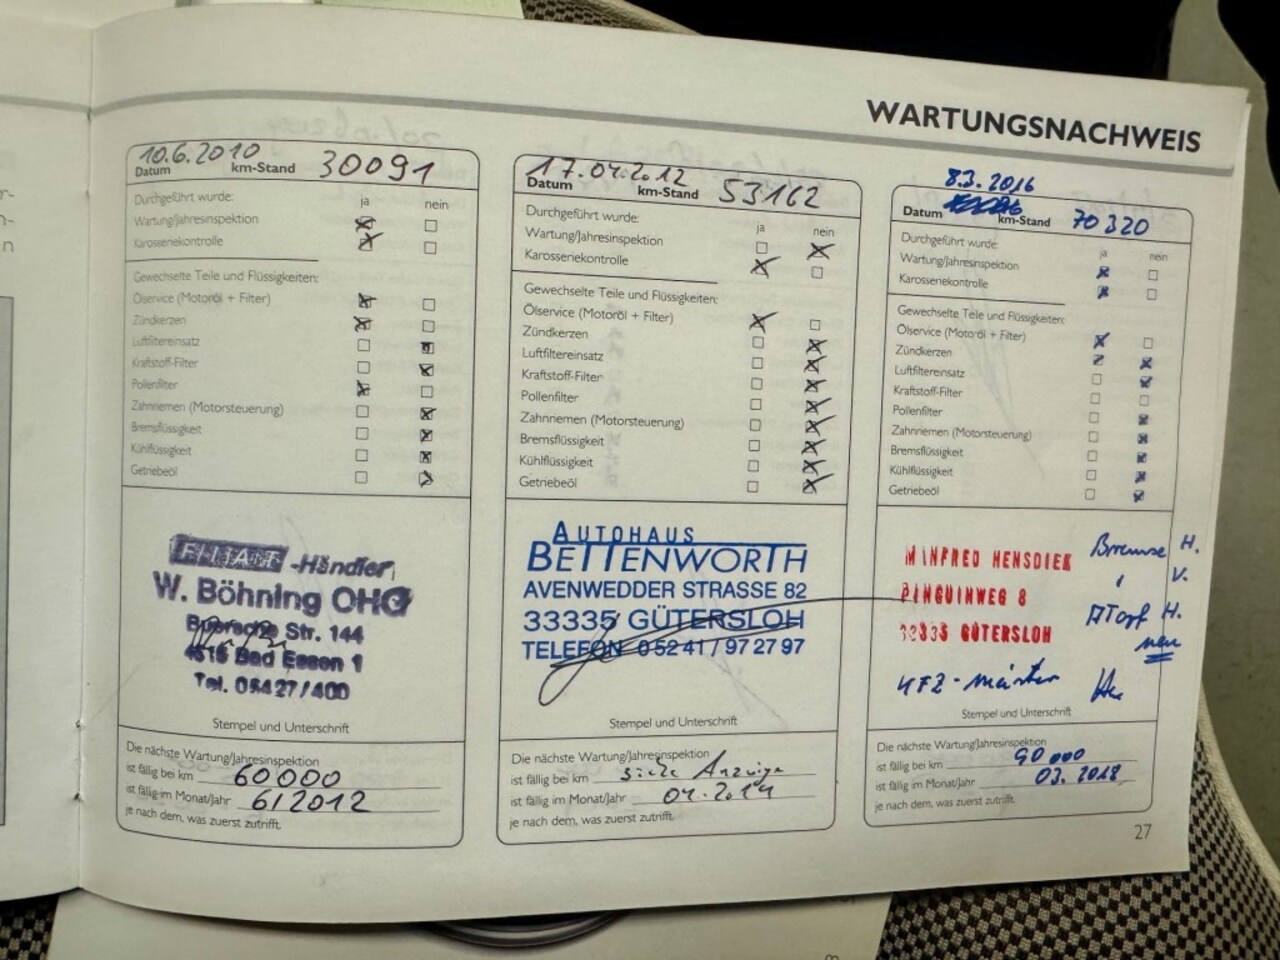 WARTUNGSNACHWEIS
10.6.2010
Datum km-Stand 30091
Durchgeführt wurde: ja nein
Wartung/Jahresinspektion
Karosseriekontrolle
Gewechselte Teile und Flüssigkeiten:
Ölservice (Motoröl + Filter)
Zündkerzen
Luftfiltereinsatz
Kraftstoff-Filter
Pollenfilter
Zahnriemen (Motorsteuerung)
Bremsflüssigkeit
Kühlflüssigkeit
Getriebeöl
FIAT-Händler
W. Böhning OHG
Str. 144
Bad Essen 1
Tel. 05427/400
Stempel und Unterschrift
Die nächste Wartung/Jahresinspektion
ist fällig bei km 60000
ist fällig im Monat/Jahr 6/2012
je nach dem, was zuerst zutrifft.
17.04.2012
Datum km-Stand 53162
Durchgeführt wurde: ja nein
Wartung/Jahresinspektion
Karosseriekontrolle
Gewechselte Teile und Flüssigkeiten:
Ölservice (Motoröl + Filter)
Zündkerzen
Luftfiltereinsatz
Kraftstoff-Filter
Pollenfilter
Zahnriemen (Motorsteuerung)
Bremsflüssigkeit
Kühlflüssigkeit
Getriebeöl
AUTOHAUS
BETTENWORTH
AVENWEDDER STRASSE 82
33335 GÜTERSLOH
TELEFON 05241/972797
Stempel und Unterschrift
Die nächste Wartung/Jahresinspektion
ist fällig bei km siehe Anzeige
ist fällig im Monat/Jahr 04.2014
je nach dem, was zuerst zutrifft.
8.3.2016
Datum km-Stand 70320
Durchgeführt wurde: ja nein
Wartung/Jahresinspektion
Karosseriekontrolle
Gewechselte Teile und Flüssigkeiten:
Ölservice (Motoröl + Filter)
Zündkerzen
Luftfiltereinsatz
Kraftstoff-Filter
Pollenfilter
Zahnriemen (Motorsteuerung)
Bremsflüssigkeit
Kühlflüssigkeit
Getriebeöl
MANFRED HENSDIEK
PINGUINWEG 8
33335 GÜTERSLOH
KFZ-meister
Bremse H.
V.
ATopf H.
neu
Stempel und Unterschrift
Die nächste Wartung/Jahresinspektion
ist fällig bei km 90000
ist fällig im Monat/Jahr 03.2018
je nach dem, was zuerst zutrifft.
27